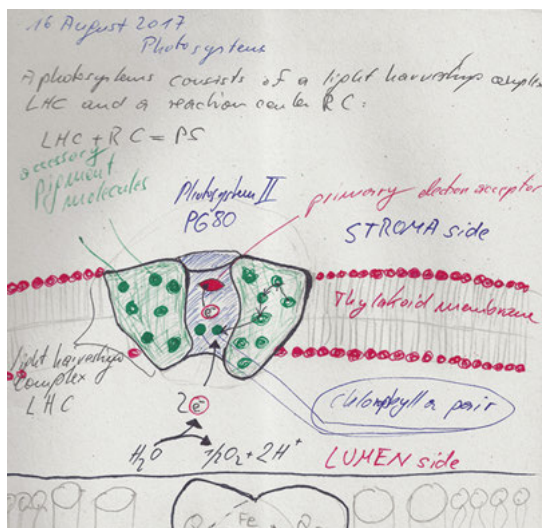 16 August 2017
Photosystems
A photosystems consists of a light harvesting complex
LHC and a reaction center RC:
LHC + RC = PS
accessory
pigment
molecules
Photosystem II
PG80
primary electron acceptor
STROMA side
e-
Thylakoid membrane
light harvesting
complex
LHC
2 e-
chlorophyll a pair
H2O
1/2O2 + 2H+
LUMEN side
Fe
Q
Q